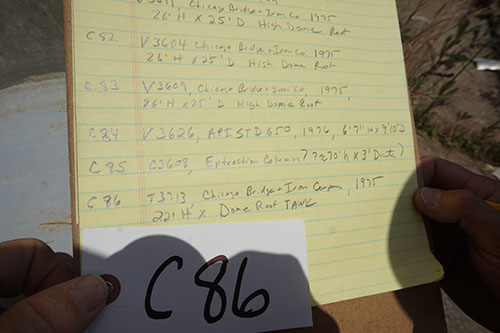 Chicago Bridge + Iron Co. 1975
26' H X 25' D High Dome Roof
C82 V3604 Chicago Bridge + Iron Co. 1975
26' H X 25' D High Dome Roof
C83 V3609, Chicago Bridge + Iron Co. 1975,
26' H X 25' D High Dome Roof
C84 V3626, API STD 650, 1976, 6'7" H X 9'10" D
C85 C3608, Extraction Column (? x 70' h X 3' Diameter)
C86 T3713, Chicago Bridge + Iron Company, 1975
22' H X Dome Roof TANK
C86